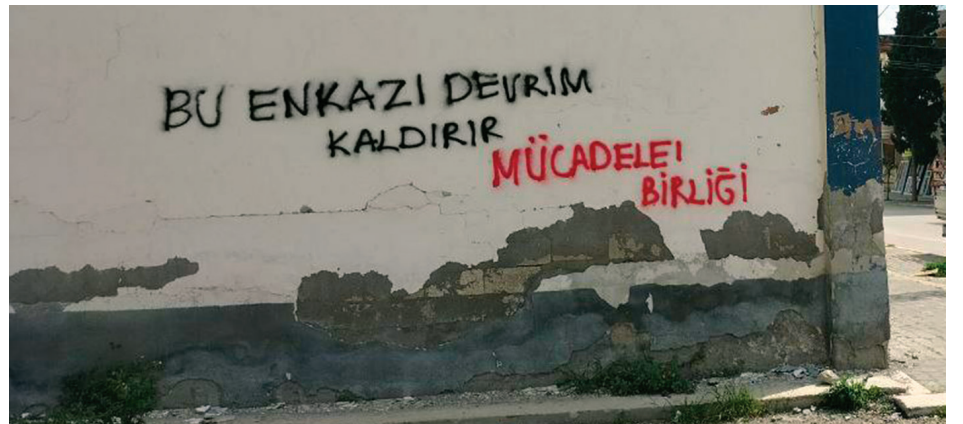 BU ENKAZI DEVRIM
KALDIRIR
MÜCADELE
BİRLİĞİ